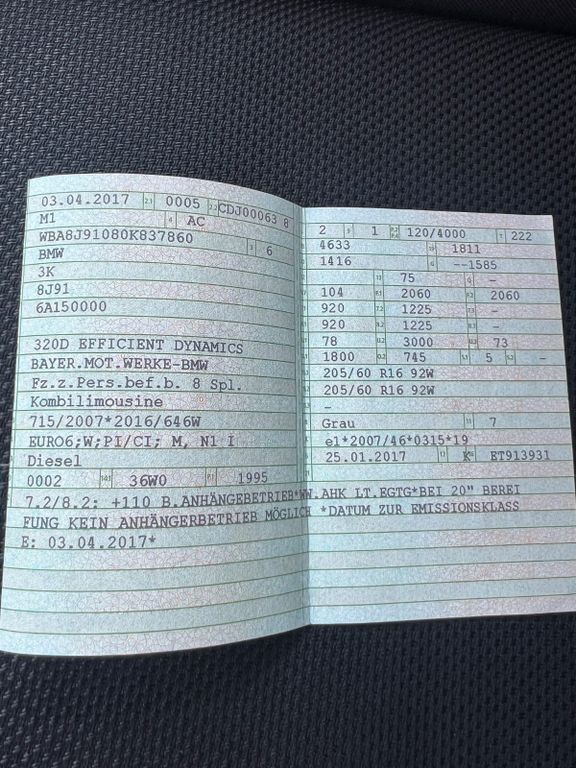 03.04.2017 2.1 0005 2.2 CDJ00063 8
M1 4 AC
WBA8J91080K837860 3 6
BMW
3K
8J91
6A150000
320D EFFICIENT DYNAMICS
BAYER.MOT.WERKE-BMW
Fz.z.Pers.bef.b. 8 Spl.
Kombilimousine
715/2007*2016/646W
EURO6;W;PI/CI; M, N1 I
Diesel
0002 14.1 36W0 P.1 1995
7.2/8.2: +110 B.ANHÄNGEBETRIEB*WW.AHK LT.EGTG*BEI 20" BEREI
FUNG KEIN ANHÄNGERBETRIEB MÖGLICH *DATUM ZUR EMISSIONSKLASS
E: 03.04.2017*
2 9 1 120/4000 T 222
4633 19 1811
1416 G --1585
13 75 Q -
104 F.1 2060 F.2 2060
920 7.2 1225 7.3 -
920 8.2 1225 8.3 -
78 U.2 3000 U.3 73
1800 O.2 745 S.1 5 S.2 -
205/60 R16 92W
205/60 R16 92W
-
Grau 11 7
e1*2007/46*0315*19
25.01.2017 17 K 16 ET913931